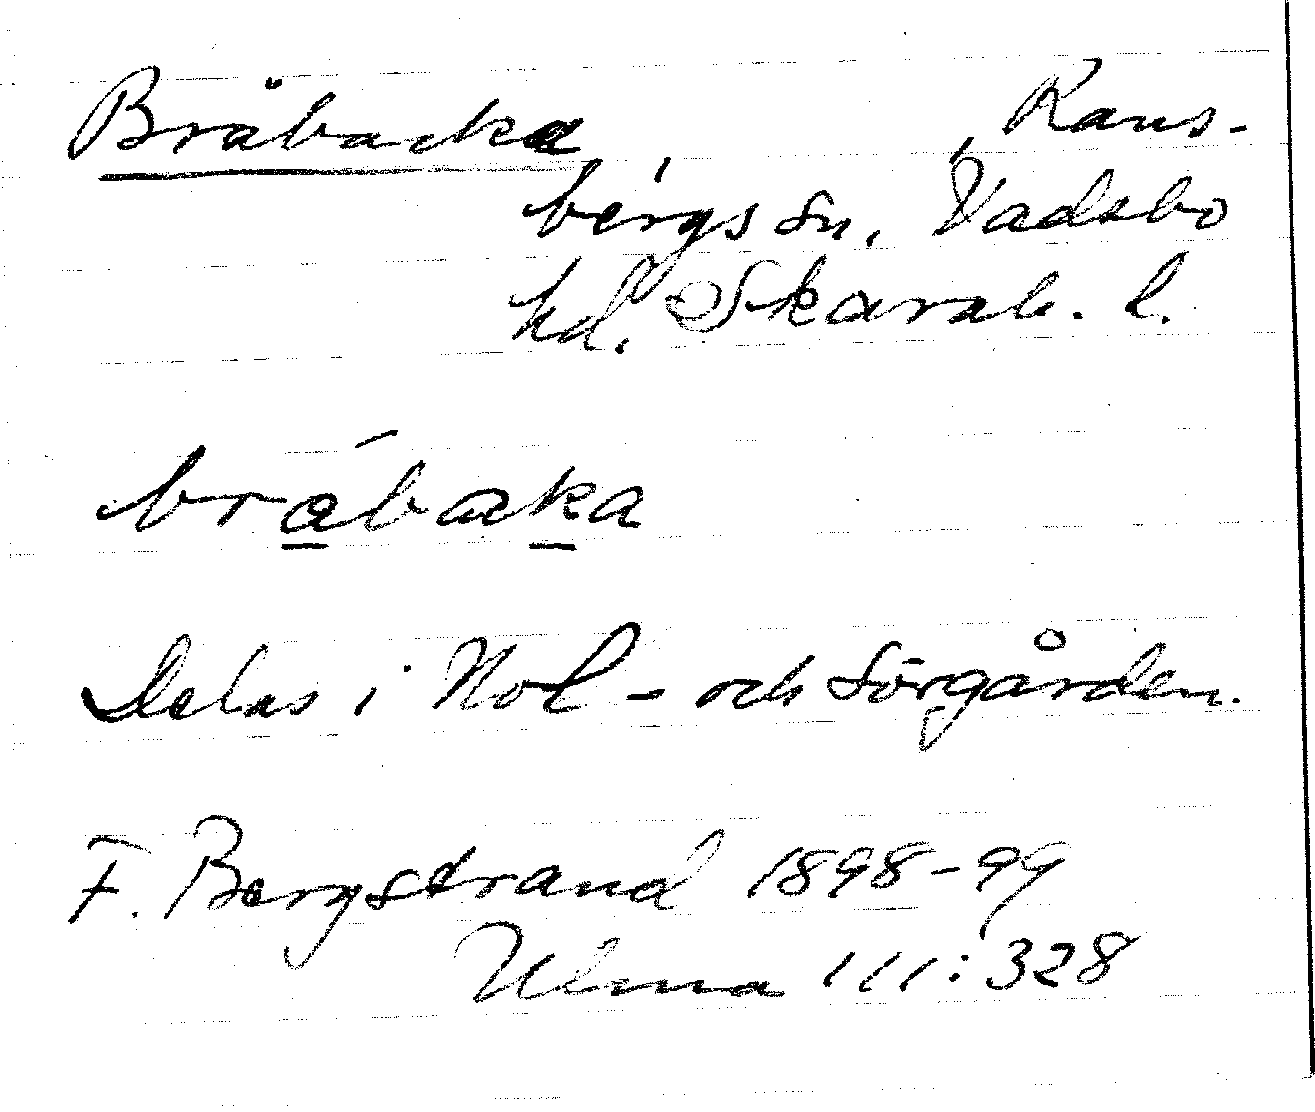 Bråbacka, Rans-
bergs sn, Vadsbo
hd, Skarab. l.
bråbacka
Delas i Nol- och Sörgården.
F. Bergstrand 1898-99
Ulma 111:328